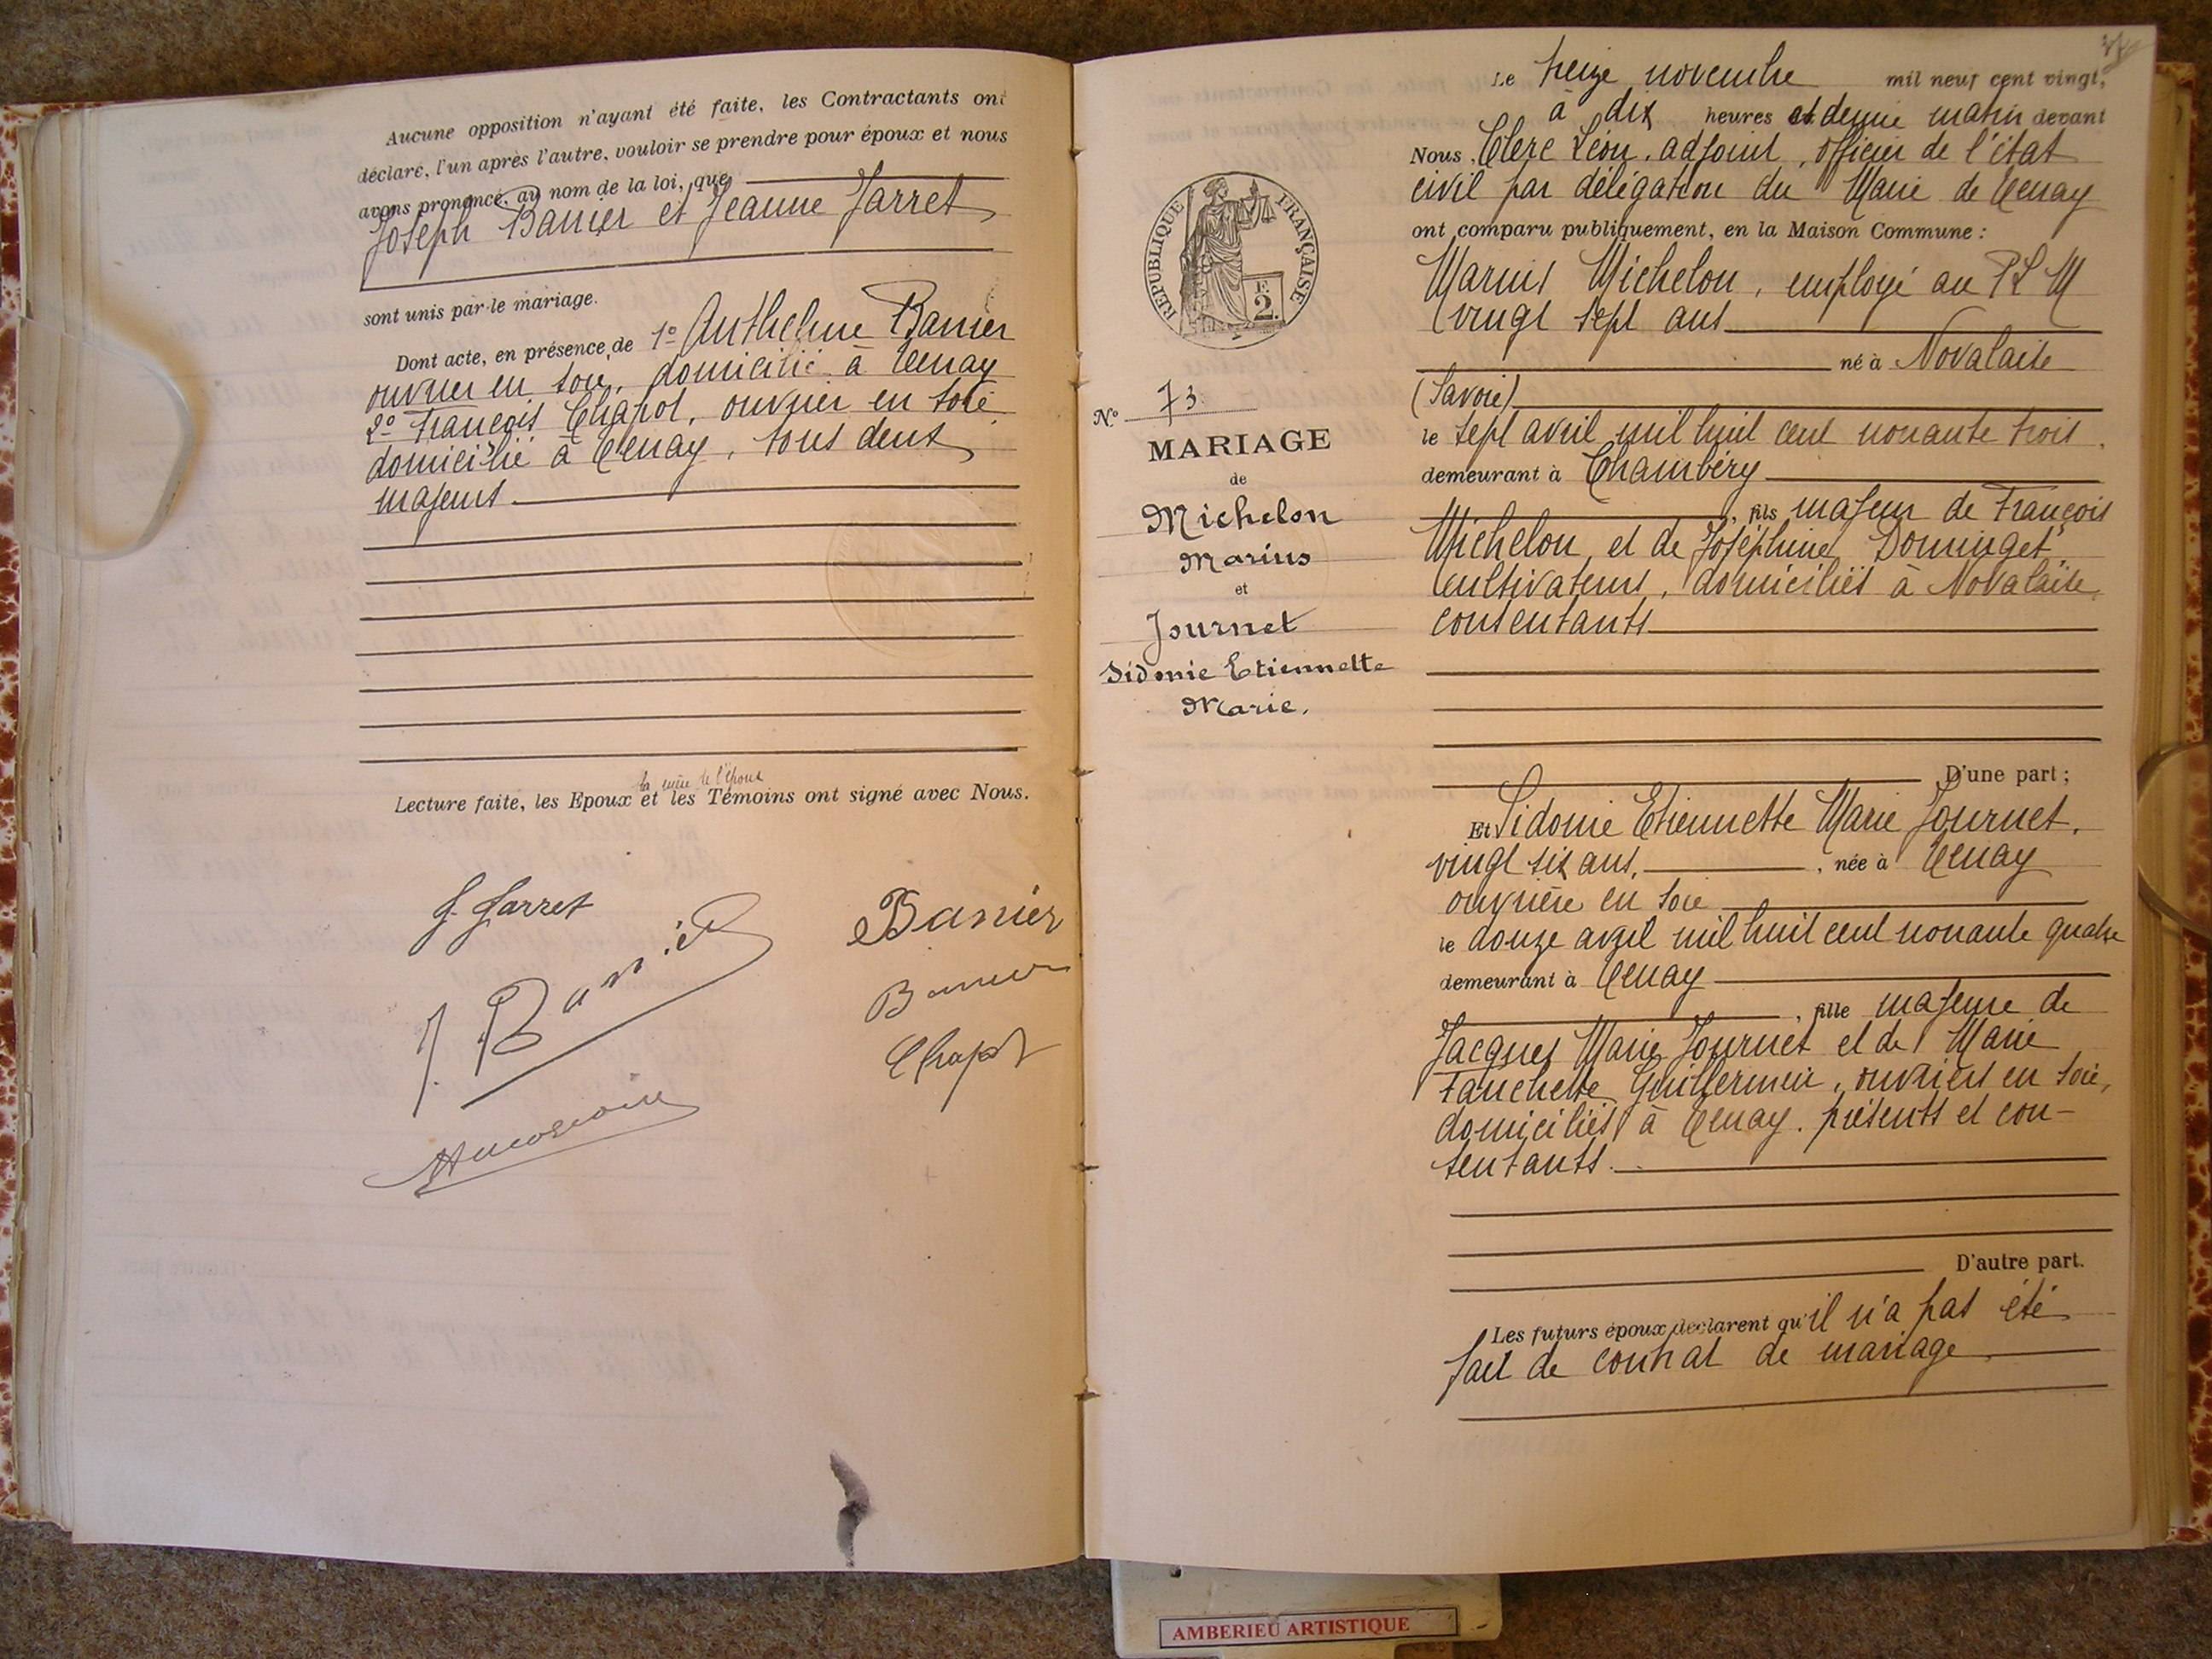 Aucune opposition n'ayant été faite, les Contractants ont
déclaré, l'un après l'autre, vouloir se prendre pour époux et nous
avons prononcé, au nom de la loi, que
Joseph Banier et Jeanne Jarret
sont unis par le mariage.
Dont acte, en présence de 1° Anthelme Banier
ouvrier en soie, domicilié à Tenay
2° François Chapot, ouvrier en soie
domicilié à Tenay, tous deux
majeurs.
la mère de l'époux
Lecture faite, les Epoux et les Témoins ont signé avec Nous.
J. Jarret
J. Banier
Banier
Banier
Chapot
REPUBLIQUE FRANÇAISE
F. 2.
N° 73
MARIAGE
de
Michelon
Marius
et
Journet
Sidonie Etiennette
Marie.
Le treize novembre mil neuf cent vingt,
à dix heures et demie matin devant
Nous, Clerc Léon, adjoint, officier de l'état
civil par délégation du Maire de Tenay
ont comparu publiquement, en la Maison Commune :
Marius Michelon, employé au P L M
vingt sept ans
né à Novalaise
(Savoie)
le sept avril mil huit cent nonante trois,
demeurant à Chambéry
, fils majeur de François
Michelon, et de Joséphine Dominget
cultivateurs, domiciliés à Novalaise,
consentants
D'une part ;
Et Sidonie Etiennette Marie Journet,
vingt six ans, , née à Tenay
ouvrière en soie
le douze avril mil huit cent nonante quatre
demeurant à Tenay
, fille majeure de
Jacques Marie Journet et de Marie
Fanchette Guillermin, ouvriers en soie,
domiciliés à Tenay. présents et con-
sentants.
D'autre part.
Les futurs époux déclarent qu'il n'a pas été
fait de contrat de mariage
AMBERIEU ARTISTIQUE